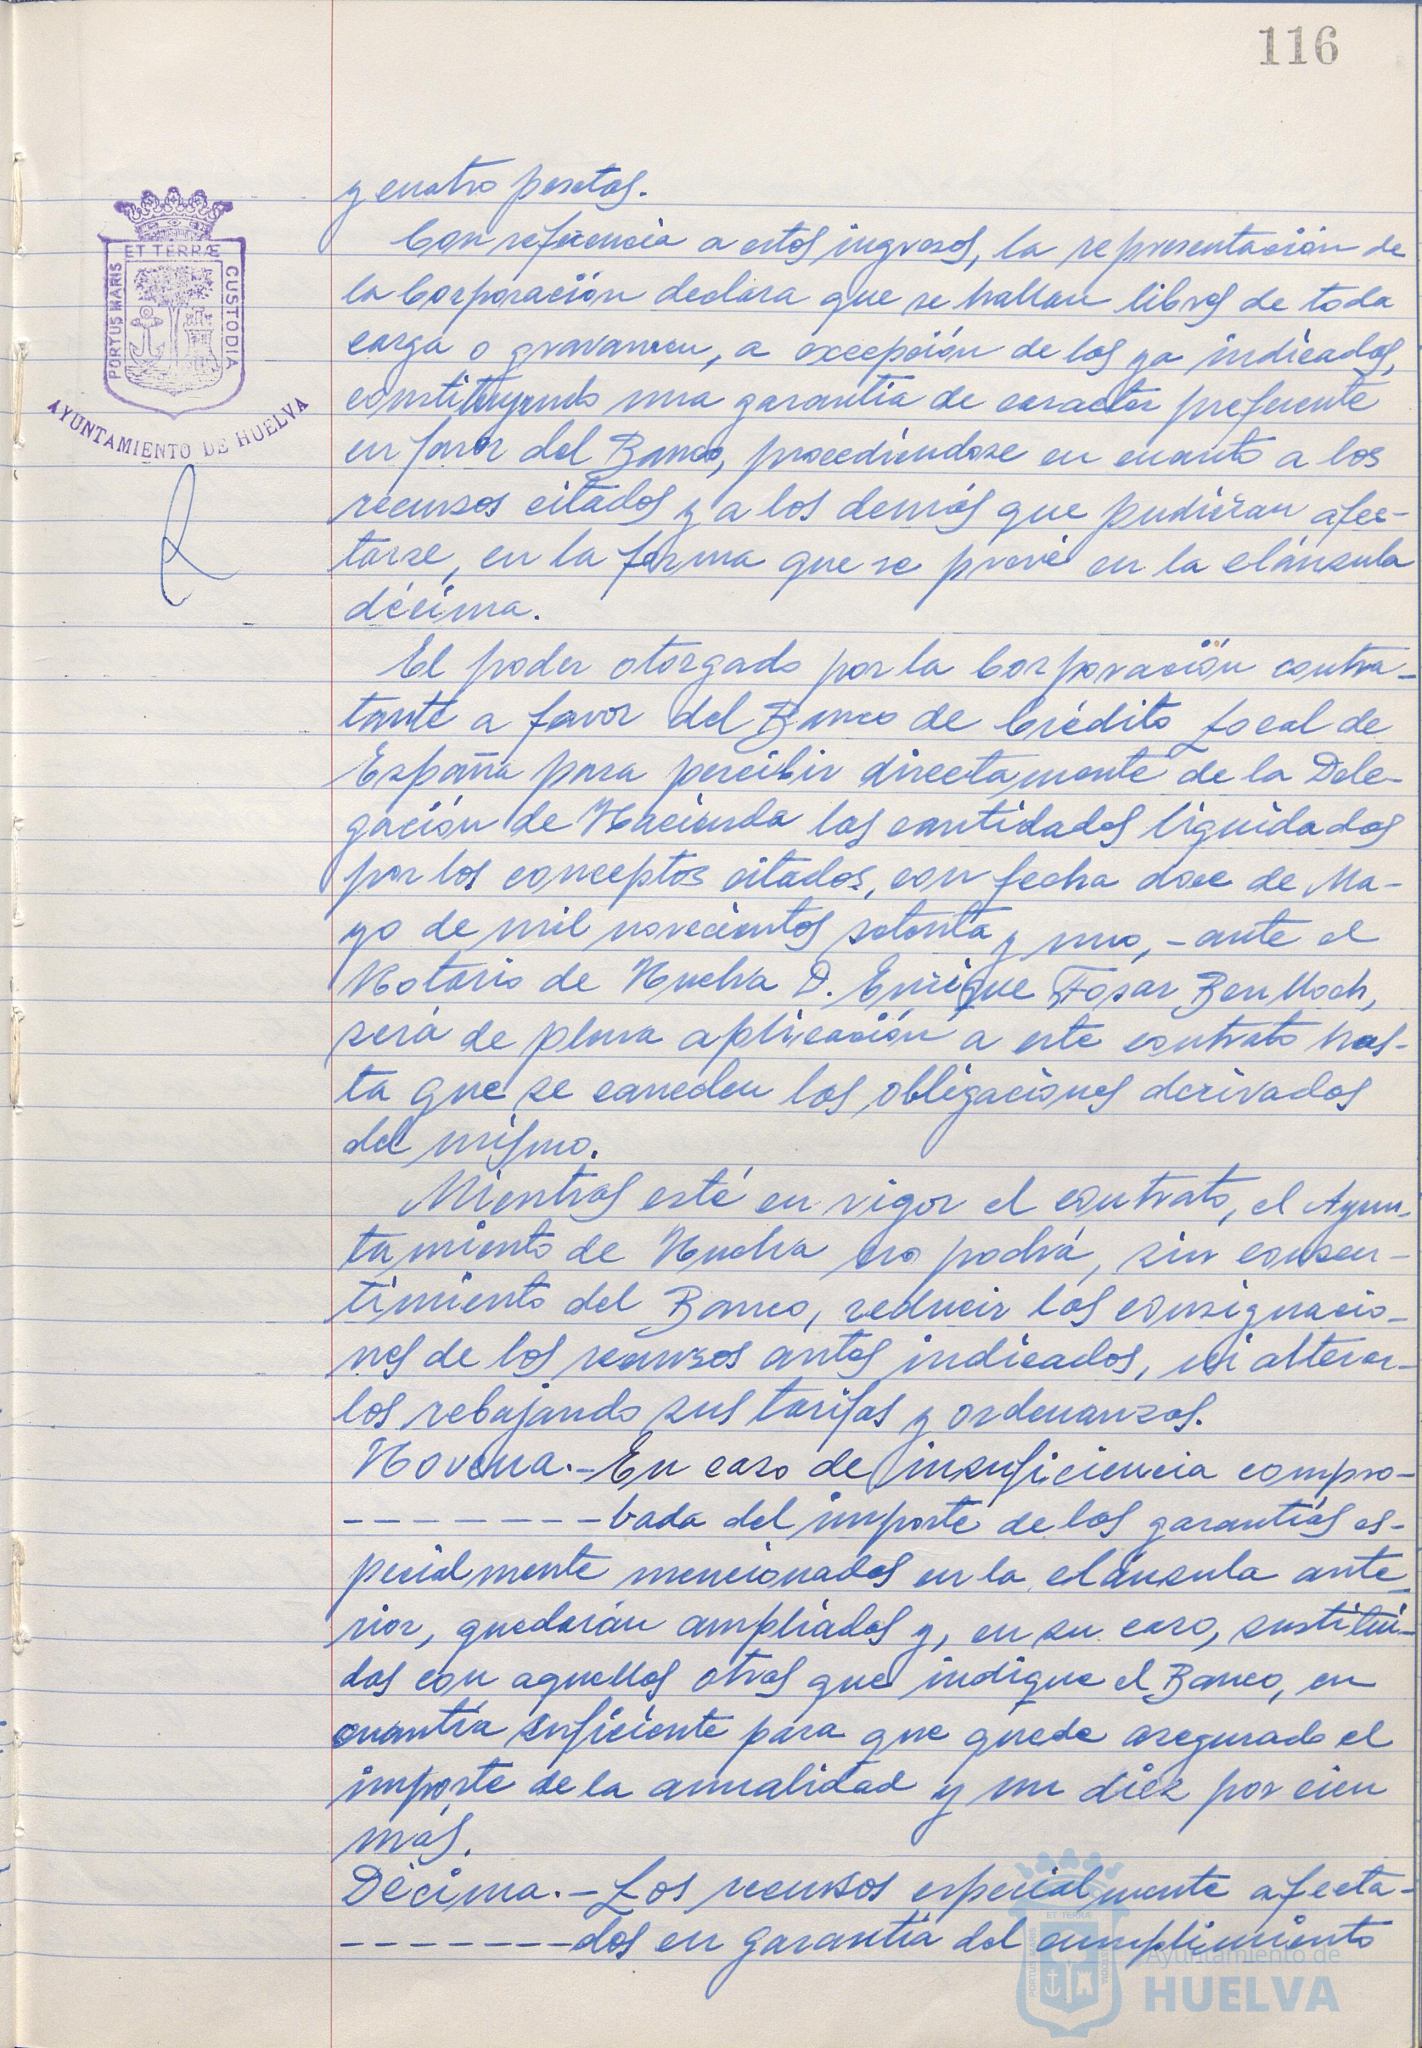 116
ET TERRÆ
PORTUS MARIS
CUSTODIA
AYUNTAMIENTO DE HUELVA
y cuatro pesetas.
Con referencia a estos ingresos, la representación de
la Corporación declara que se hallan libres de toda
carga o gravamen, a excepción de los ya indicados,
constituyendo una garantía de caracter preferente
en favor del Banco, procediéndose en cuanto a los
recursos citados y a los demás que pudieran afec-
tarse, en la forma que se prevé en la cláusula
décima.
El poder otorgado por la Corporación contra-
tante a favor del Banco de Crédito Local de
España para percibir directamente de la Dele-
gación de Hacienda las cantidades liquidadas
por los conceptos citados, con fecha doce de Ma-
yo de mil novecientos setenta y uno, - ante el
Notario de Huelva D. Enrique Fosar Benlloch,
será de plena aplicación a este contrato has-
ta que se cancelen las obligaciones derivadas
del mismo.
Mientras esté en vigor el contrato, el Ayun-
tamiento de Huelva no podrá, sin consen-
timiento del Banco, reducir las consignacio-
nes de los recursos antes indicados, ni alterar-
los rebajando sus tarifas y ordenanzas.
Novena.- En caso de insuficiencia compro-
------- bada del importe de las garantías es-
pecialmente mencionadas en la cláusula ante-
rior, quedarán ampliadas y, en su caso, sustitui-
das con aquellas otras que indique el Banco, en
cuantía suficiente para que quede asegurado el
importe de la anualidad y un diez por cien
más.
Décima.- Los recursos especialmente afecta-
------- dos en garantía del cumplimiento
ET TERRA
PORTUS MARIS
CUSTODIA
Ayuntamiento de
HUELVA